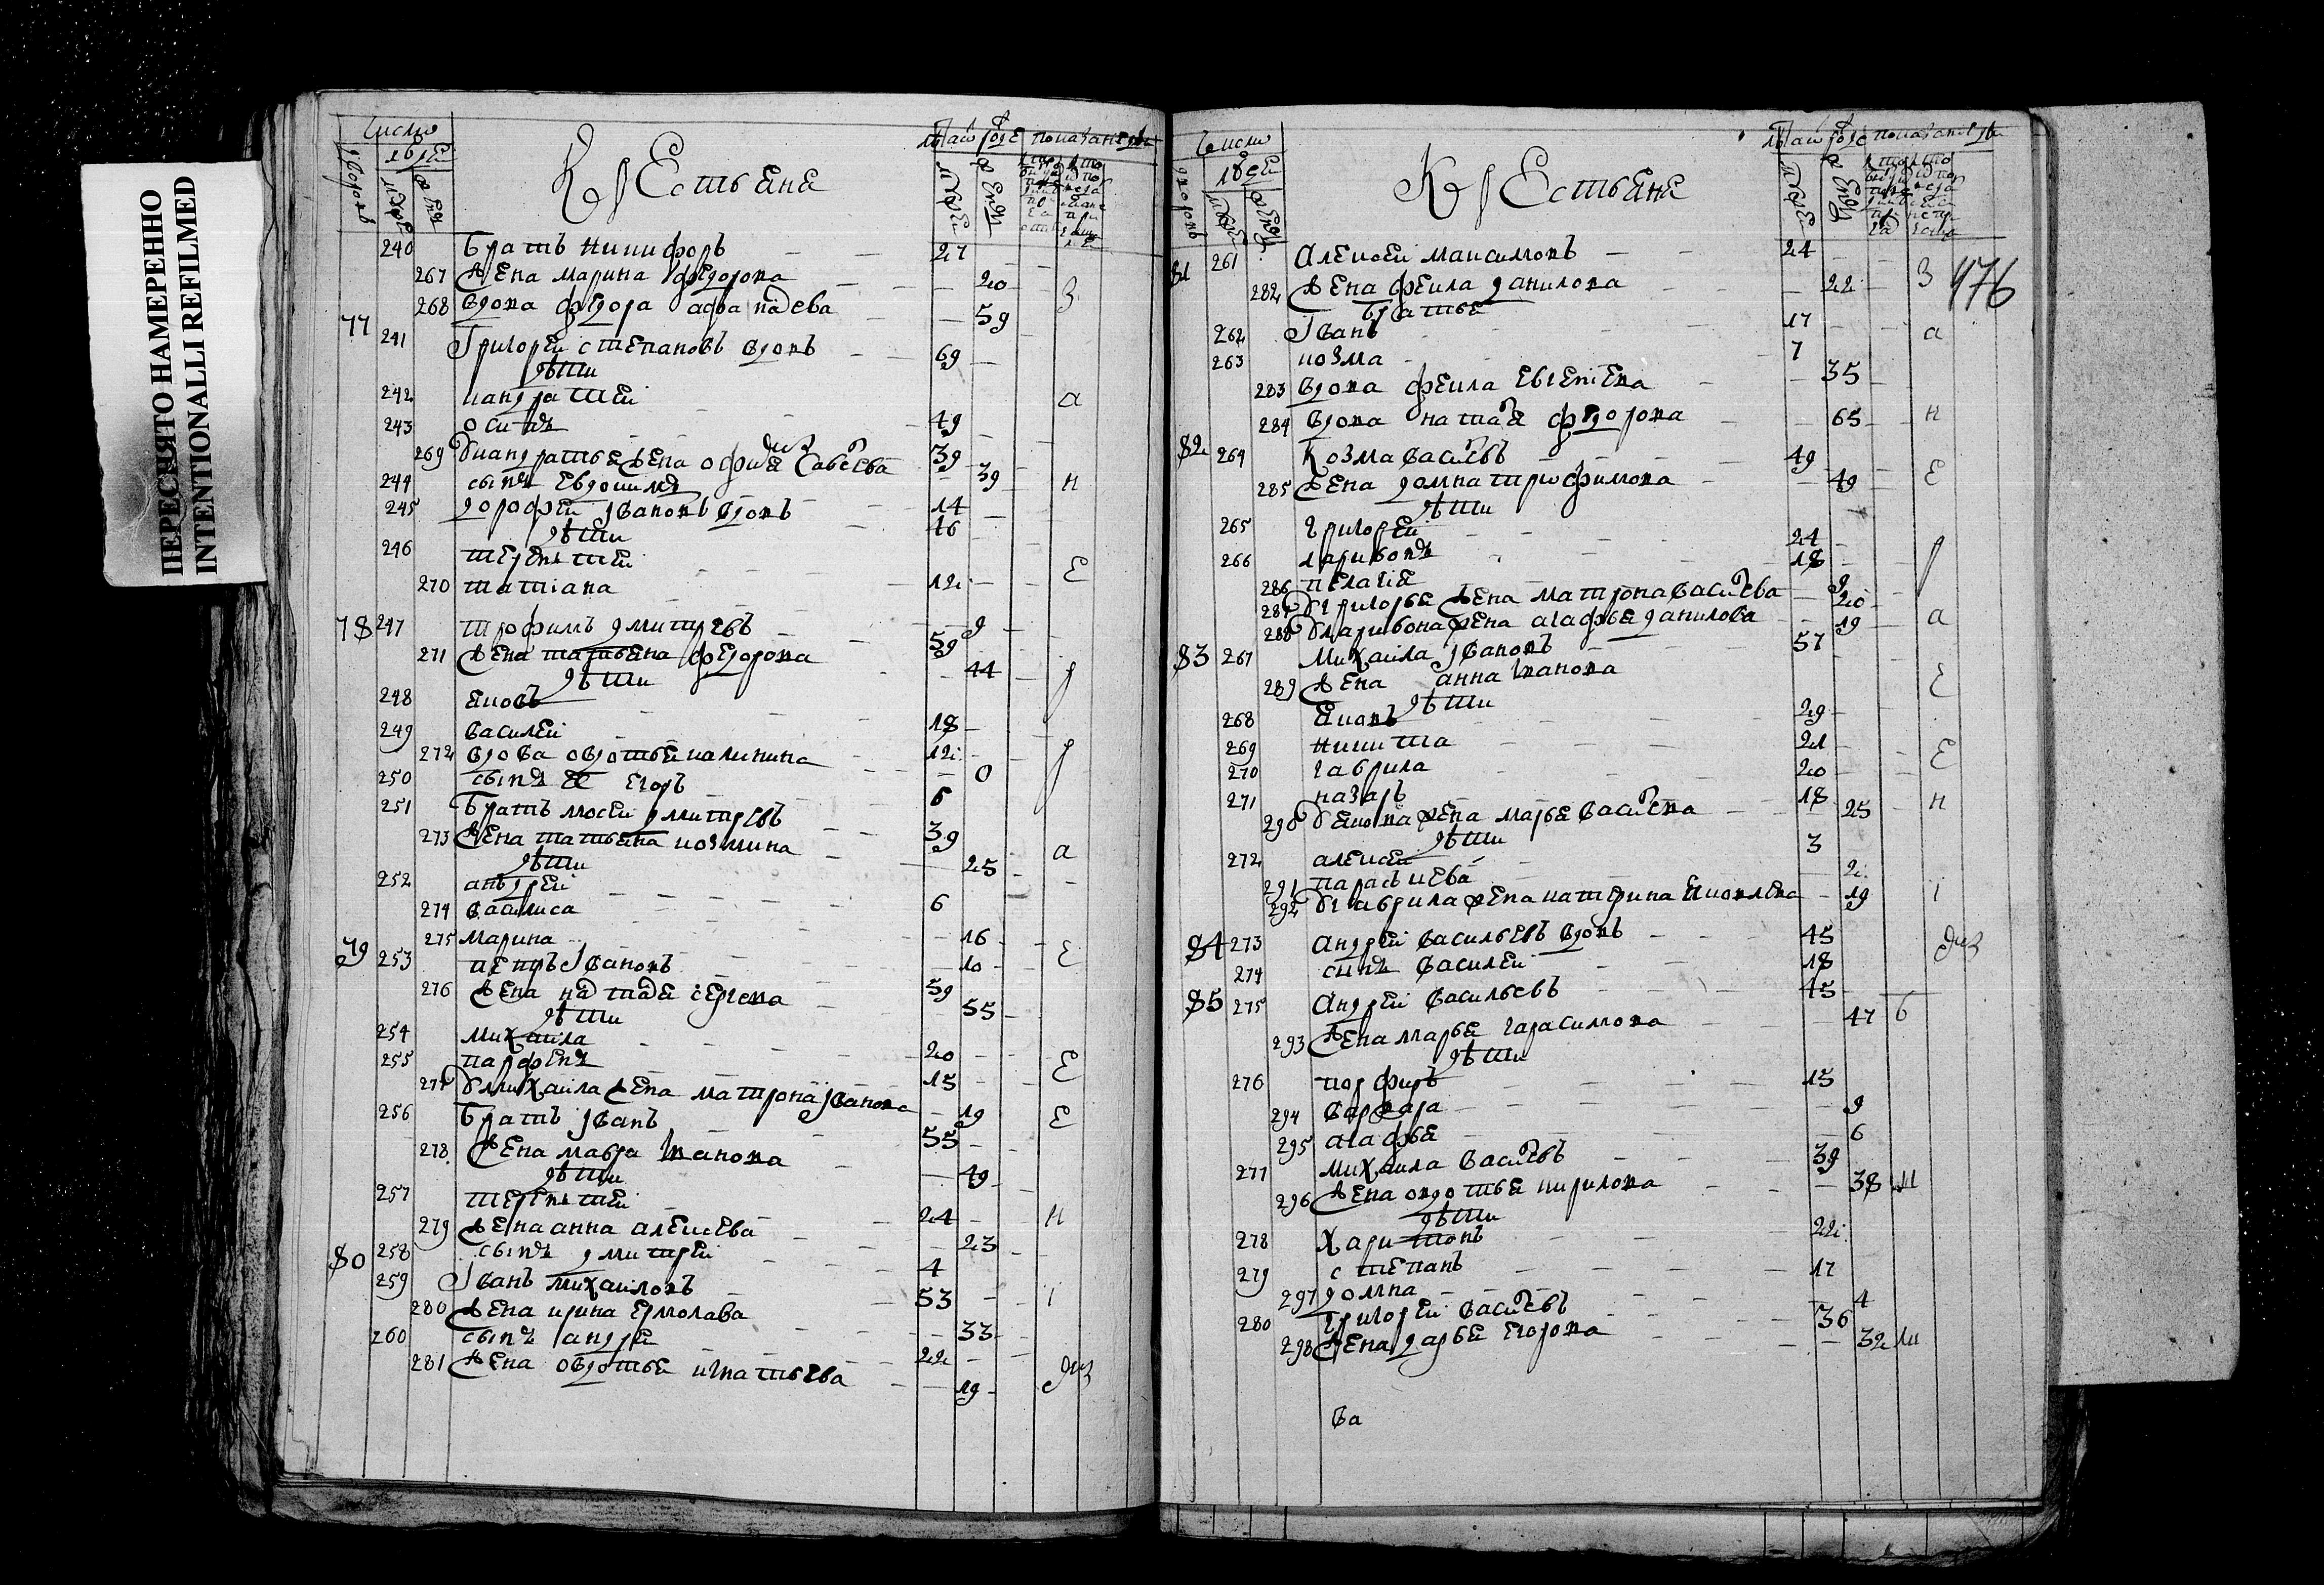 ПЕРЕСНЯТО НАМЕРЕННО
INTENTIONALLI REFILMED
Число
людей
дворовъ
мужес
женс
Крестьяне
240 братъ никифоръ 27
267 жена марина федорова 20
268 вдова федора афанасева 59
77 241 Григорей степановъ вдовъ 69
дѣти
242 кандратей
243 осипъ 49
269 У кандратья жена офимья Савельева 39 39
244 сынъ Евдокимъ
245 дорофей Iвановъ вдовъ 14
дѣти 46
246 терентей
270 татiана 12
78 247 трофимъ дмитревъ 9
271 жена татьяна федорова 59
дѣти 44
248 яковъ
249 василей 18
272 вдова овдотья калинина 12
250 сынъ ея егоръ 0
251 братъ мосей дмитревъ 6
273 жена татьяна козмина 39
дѣти 25
252 андрей
274 василиса 6
275 марина 16
79 253 петръ Iвановъ 10
276 жена наталья сергева 59
дѣти 55
254 михаила
255 парфенъ 20
277 У михаила жена матрона Iванова 15
256 братъ Iванъ 19
278 жена мавра Iванова 55
дѣти 49
257 терентей
279 жена анна алексева 24
258 сынъ дмитрей 23
80 259 Iванъ михаиловъ 4
280 жена ирина ермолава 53
260 сынъ андрей 33
281 жена овдотья игнатьева 22
19
Число
людей
дворовъ
Крестьяне
476
81 261 Алексей максимовъ 24
282 жена фекла данилова 22
братья
262 Iванъ 17
263 козма 7
283 вдова фекла Евгенiева 35
284 вдова наталья федорова 65
82 264 Козма васильевъ 49
285 жена домна трофимова 49
дѣти
265 григорей 24
266 ларивонъ 18
286 пелагея 9
287 У григорья жена матрона васильева 20
288 У ларивона жена агафья данилова 19
83 267 Михаила Iвановъ 57
289 жена анна Iванова
дѣти
268 яковъ 29
269 никита 21
270 гаврила 20
271 назаръ 18
290 У якова жена марья васильева 25
дѣти
272 алексей 3
291 парасковья 2
292 У гаврила жена катерина яковлева 19
84 273 Андрей васильевъ вдовъ 45
274 сынъ василей 18
85 275 Андрей васильевъ 45
293 жена марья гарасимова 47
дѣти
276 порфиръ 15
294 варвара 9
295 агафья 6
277 михаила васильевъ 39
296 жена овдотья кирилова 38
дѣти
278 харитонъ 22
279 степанъ 17
297 домна 4
280 григорей васильевъ 36
298 жена дарья егорова 32
ва